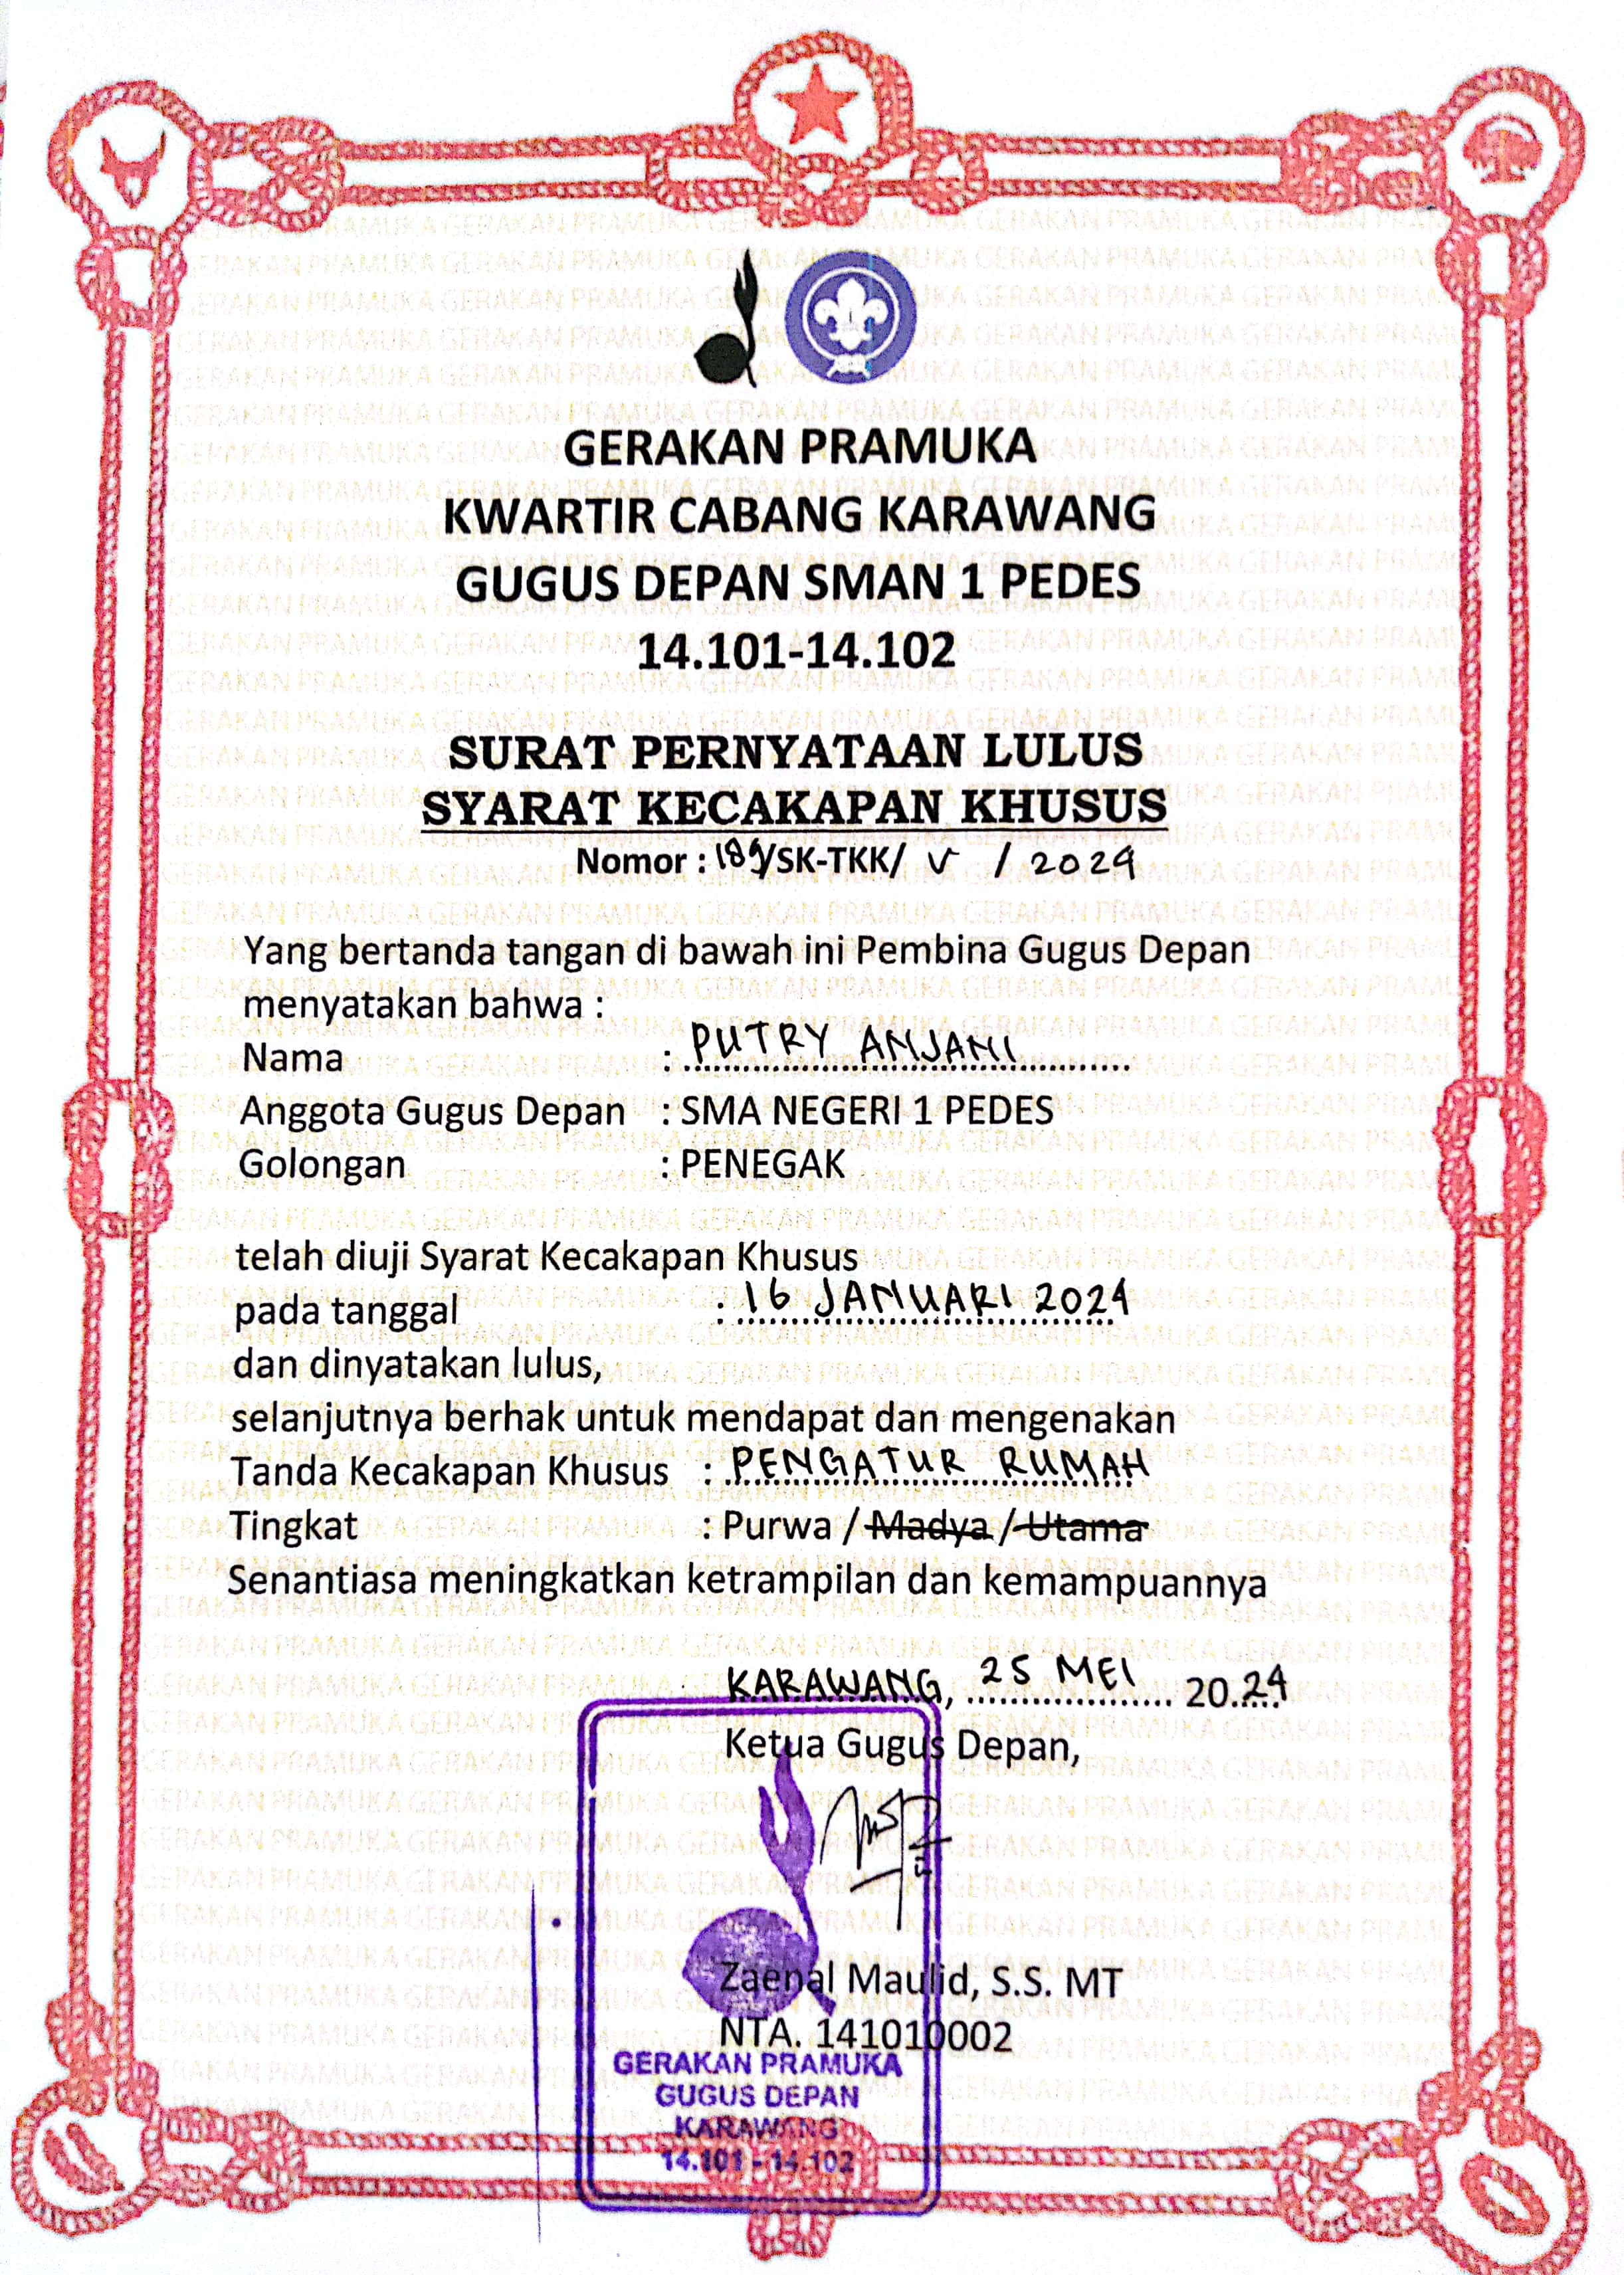 GERAKAN PRAMUKA
KWARTIR CABANG KARAWANG
GUGUS DEPAN SMAN 1 PEDES
14.101-14.102
SURAT PERNYATAAN LULUS
SYARAT KECAKAPAN KHUSUS
Nomor : 189/SK-TKK/ V / 2024
Yang bertanda tangan di bawah ini Pembina Gugus Depan
menyatakan bahwa :
Nama : PUTRY ANJANI
Anggota Gugus Depan : SMA NEGERI 1 PEDES
Golongan : PENEGAK
telah diuji Syarat Kecakapan Khusus
pada tanggal : 16 JANUARI 2024
dan dinyatakan lulus,
selanjutnya berhak untuk mendapat dan mengenakan
Tanda Kecakapan Khusus : PENGATUR RUMAH
Tingkat : Purwa / Madya / Utama
Senantiasa meningkatkan ketrampilan dan kemampuannya
KARAWANG, 25 MEI 2024
Ketua Gugus Depan,
Zaenal Maulid, S.S. MT
NTA. 141010002
GERAKAN PRAMUKA
GUGUS DEPAN
KARAWANG
14.101 - 14.102